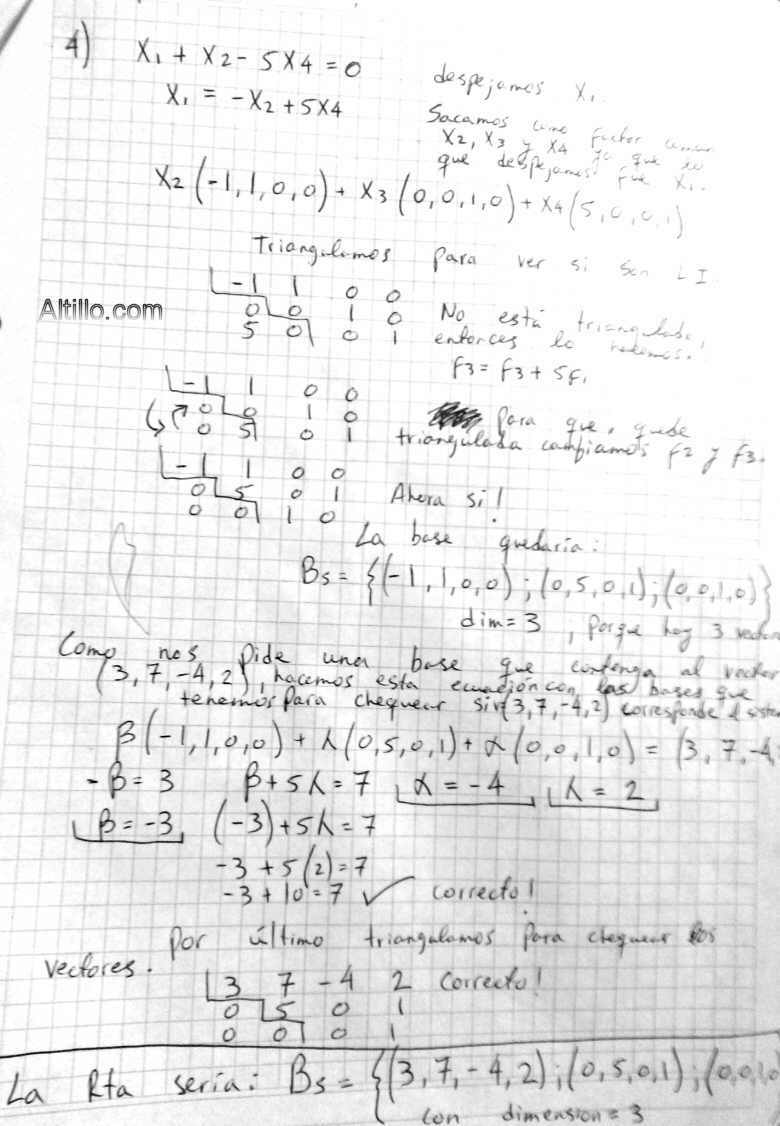 4) X1 + X2 - 5X4 = 0
despejamos X1.
X1 = -X2 + 5X4
Sacamos como factor común
X2, X3 y X4 ya que lo
que despejamos fue X1.
X2(-1,1,0,0) + X3(0,0,1,0) + X4(5,0,0,1)
Triangulamos para ver si son LI
-1 1 0 0
Altillo.com
0 0 1 0
5 0 0 1
No está triangulada,
entonces lo hacemos.
F3 = F3 + 5F1
-1 1 0 0
0 0 1 0
0 5 0 1
Para que quede
triangulada cambiamos F2 y F3.
-1 1 0 0
0 5 0 1 Ahora si!
0 0 1 0
La base quedaria:
Bs = {(-1,1,0,0);(0,5,0,1);(0,0,1,0)}
dim=3, porque hay 3 vectores
Como nos pide una base que contenga al vector
(3,7,-4,2), hacemos esta ecuación con las bases que
tenemos para chequear si (3,7,-4,2) corresponde al
β(-1,1,0,0) + λ(0,5,0,1) + α(0,0,1,0) = (3,7,-4,
-β = 3 β+5λ = 7 α = -4, λ = 2
β = -3, (-3)+5λ = 7
-3 + 5(2) = 7
-3 + 10 = 7 ✓ correcto!
Por último triangulamos para chequear los
vectores.
3 7 -4 2 Correcto!
0 5 0 1
0 0 0 1
La Rta seria: Bs = {(3,7,-4,2);(0,5,0,1);(0,0,1,0
con dimension = 3